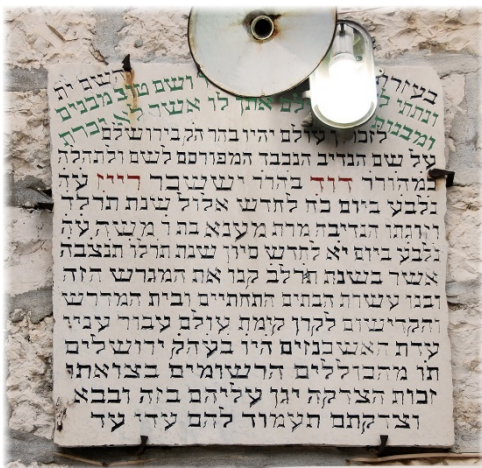 בעזרת השם ית
ונתתי ושם טוב מבנים
ומבנות אתן לו אשר לא יכרת
לזכרון עולם יהיו בהר הק בירושלם
על שם הנדיב הנכבד המפורסם לשם ולתהלה
כמהורר דוד בהרר יששכר רייז עה
נלבע ביום כח לחדש אלול שנת תרלד
וזוגתו הנדיבה מרת מענא בת ר משה עה
נלבע ביום יא לחדש סיון שנת תרלו תנצבה
אשר בשנת תרלב קנו את המגרש הזה
ובנו עשרת הבתים התחתיים ובית המדרש
והקדישום לקרן קימת עולם עבור עניי
עדת האשכנזים היו בעהק ירושלים
תו מהכוללים הרשומים בצואתו
זכות הצדקה יגן עליהם בזה ובבא
וצדקתם תעמוד להם עדי עד